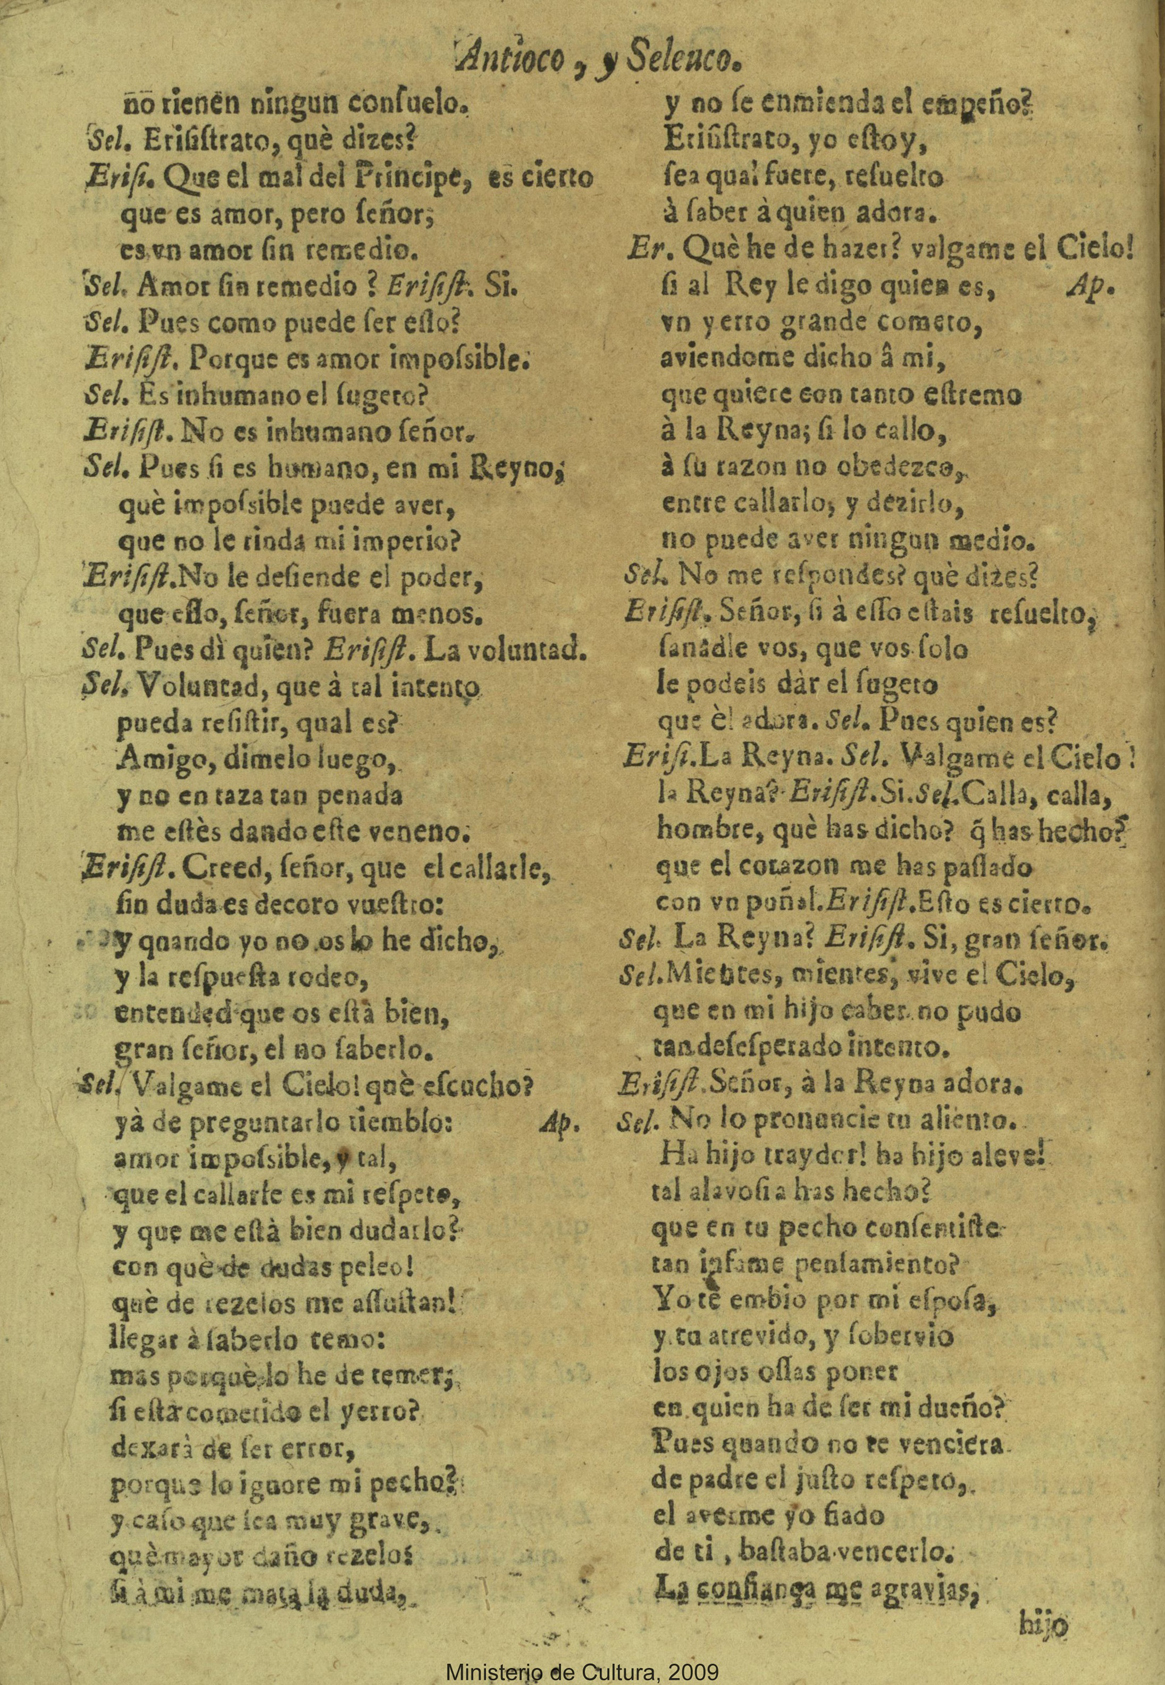 Antioco, y Seleuco.
nō tienen ningun consuelo.
Sel. Erisistrato, què dizes?
Erisi. Que el mal del Principe, es cierto
que es amor, pero señor,
es vn amor sin remedio.
Sel. Amor sin remedio? Erisist. Si.
Sel. Pues como puede ser esso?
Erisist. Porque es amor impossible.
Sel. Es inhumano el sugeto?
Erisist. No es inhumano señor.
Sel. Pues si es humano, en mi Reyno,
què impossible puede aver,
que no le rinda mi imperio?
Erisist. No le defiende el poder,
que esso, señor, fuera menos.
Sel. Pues dì quien? Erisist. La voluntad.
Sel. Voluntad, que à tal intento
pueda resistir, qual es?
Amigo, dimelo luego,
y no en taza tan penada
me estès dando este veneno.
Erisist. Creed, señor, que el callarle,
sin duda es decoro vuestro:
y quando yo no os lo he dicho,
y la respuesta rodeo,
entended que os està bien,
gran señor, el no saberlo.
Sel. Valgame el Cielo! què escucho?
yà de preguntarlo tiemblo: Ap.
amor impossible, y tal,
que el callarle es mi respeto,
y que me està bien dudarlo?
con què de dudas peleo!
què de rezelos me assustan!
llegar à saberlo temo:
mas porquè lo he de temer,
si està cometido el yerro?
dexarà de ser error,
porque lo ignore mi pecho?
y caso que sea muy grave,
què mayor daño rezelo:
si à mi me mata la duda,
y no se enmienda el empeño?
Erisistrato, yo estoy,
sea qual fuere, resuelto
à saber à quien adora.
Er. Què he de hazer? valgame el Cielo!
si al Rey le digo quien es, Ap.
vn yerro grande cometo,
aviendome dicho â mi,
que quiere con tanto estremo
à la Reyna; si lo callo,
à su razon no obedezco,
entre callarlo, y dezirlo,
no puede aver ningun medio.
Sel. No me respondes? què dizes?
Erisist. Señor, si à esso estais resuelto,
sanadle vos, que vos solo
le podeis dàr el sugeto
que èl adora. Sel. Pues quien es?
Erisi. La Reyna. Sel. Valgame el Cielo!
la Reyna? Erisist. Si. Sel. Calla, calla,
hombre, què has dicho? q̃ has hecho?
que el corazon me has passado
con vn puñal. Erisist. Esto es cierto.
Sel. La Reyna? Erisist. Si, gran señor.
Sel. Mientes, mientes, vive el Cielo,
que en mi hijo caber no pudo
tan desesperado intento.
Erisist. Señor, à la Reyna adora.
Sel. No lo pronuncie tu aliento.
Ha hijo traydor! ha hijo aleve!
tal alavosia has hecho?
que en tu pecho consentiste
tan infame pensamiento?
Yo te embio por mi esposa,
y tu atrevido, y sobervio
los ojos ossas poner
en quien ha de ser mi dueño?
Pues quando no te venciera
de padre el justo respeto,
el averme yo fiado
de ti, bastaba vencerlo.
La confiança me agravias,
hijo
Ministerio de Cultura, 2009